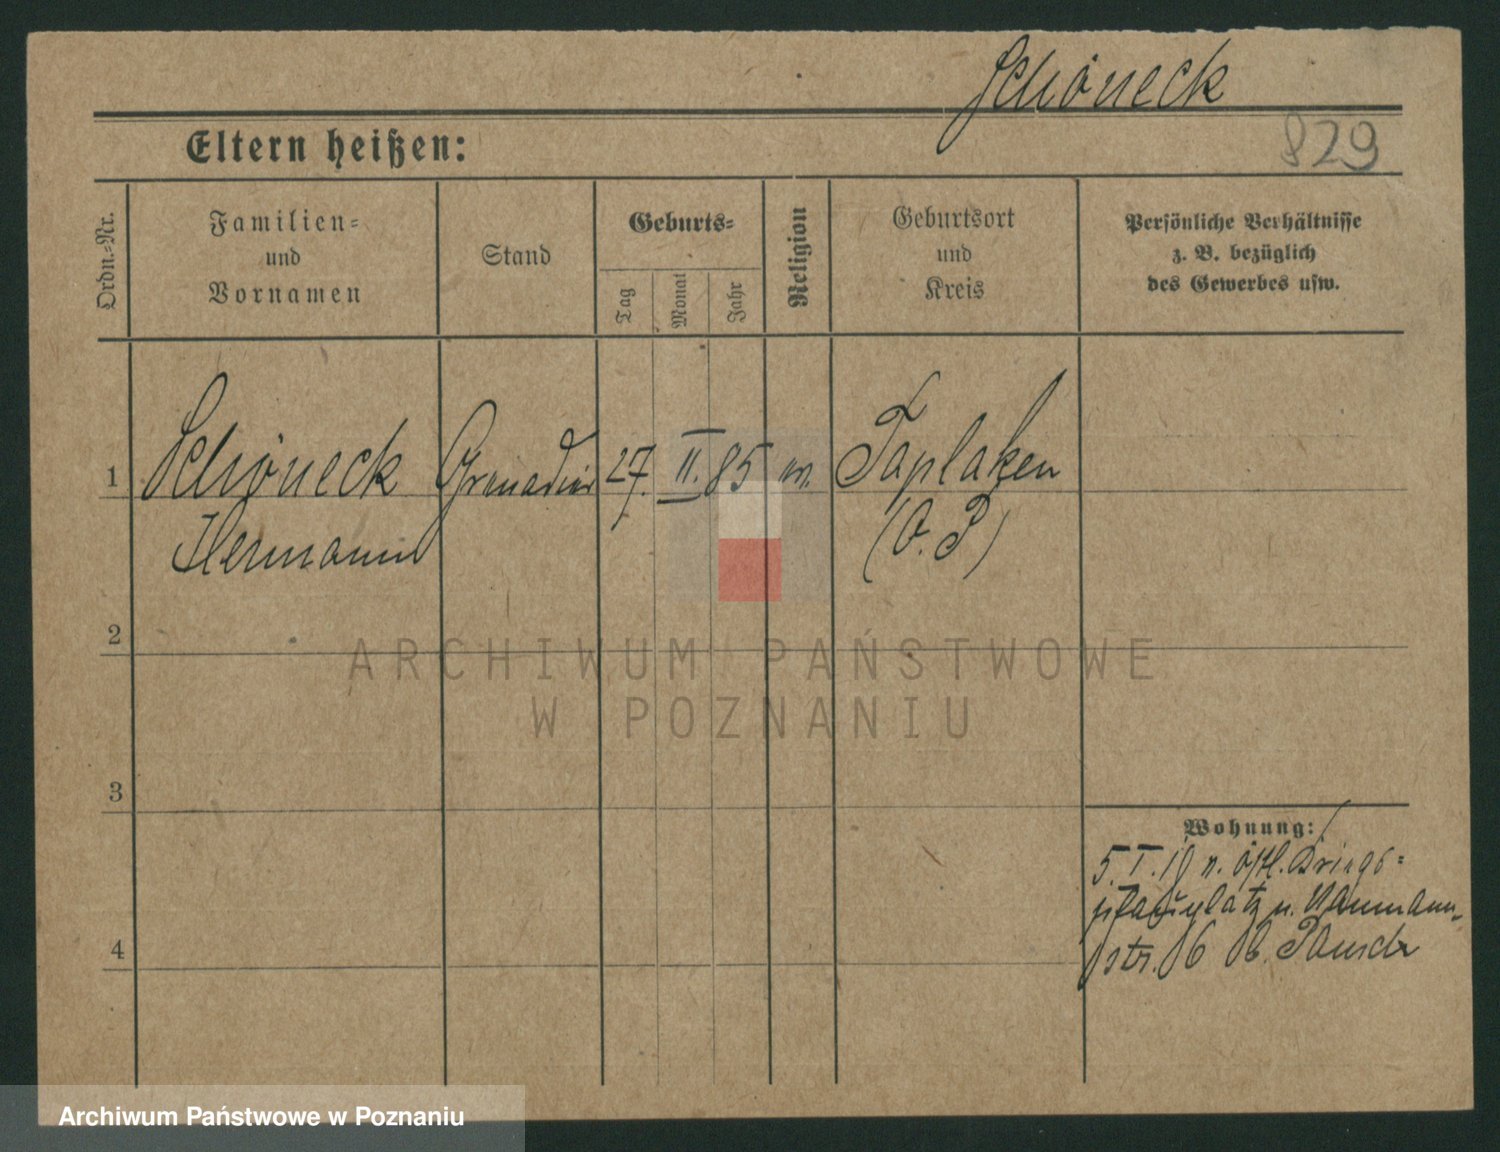 Schöneck
829
Eltern heißen:
Ordn.-Nr.
Familien-
und
Vornamen
Stand
Geburts-
Tag
Monat
Jahr
Religion
Geburtsort
und
Kreis
Persönliche Verhältnisse
z. B. bezüglich
des Gewerbes usw.
1 Schöneck Grenadier 27. II. 85 Taplaken
Hermann (O. P)
2
ARCHIWUM PAŃSTWOWE
W POZNANIU
3
Wohnung:
5. I. 10 n.
platz n. Naumann-
str. 16 b.
4
Archiwum Państwowe w Poznaniu